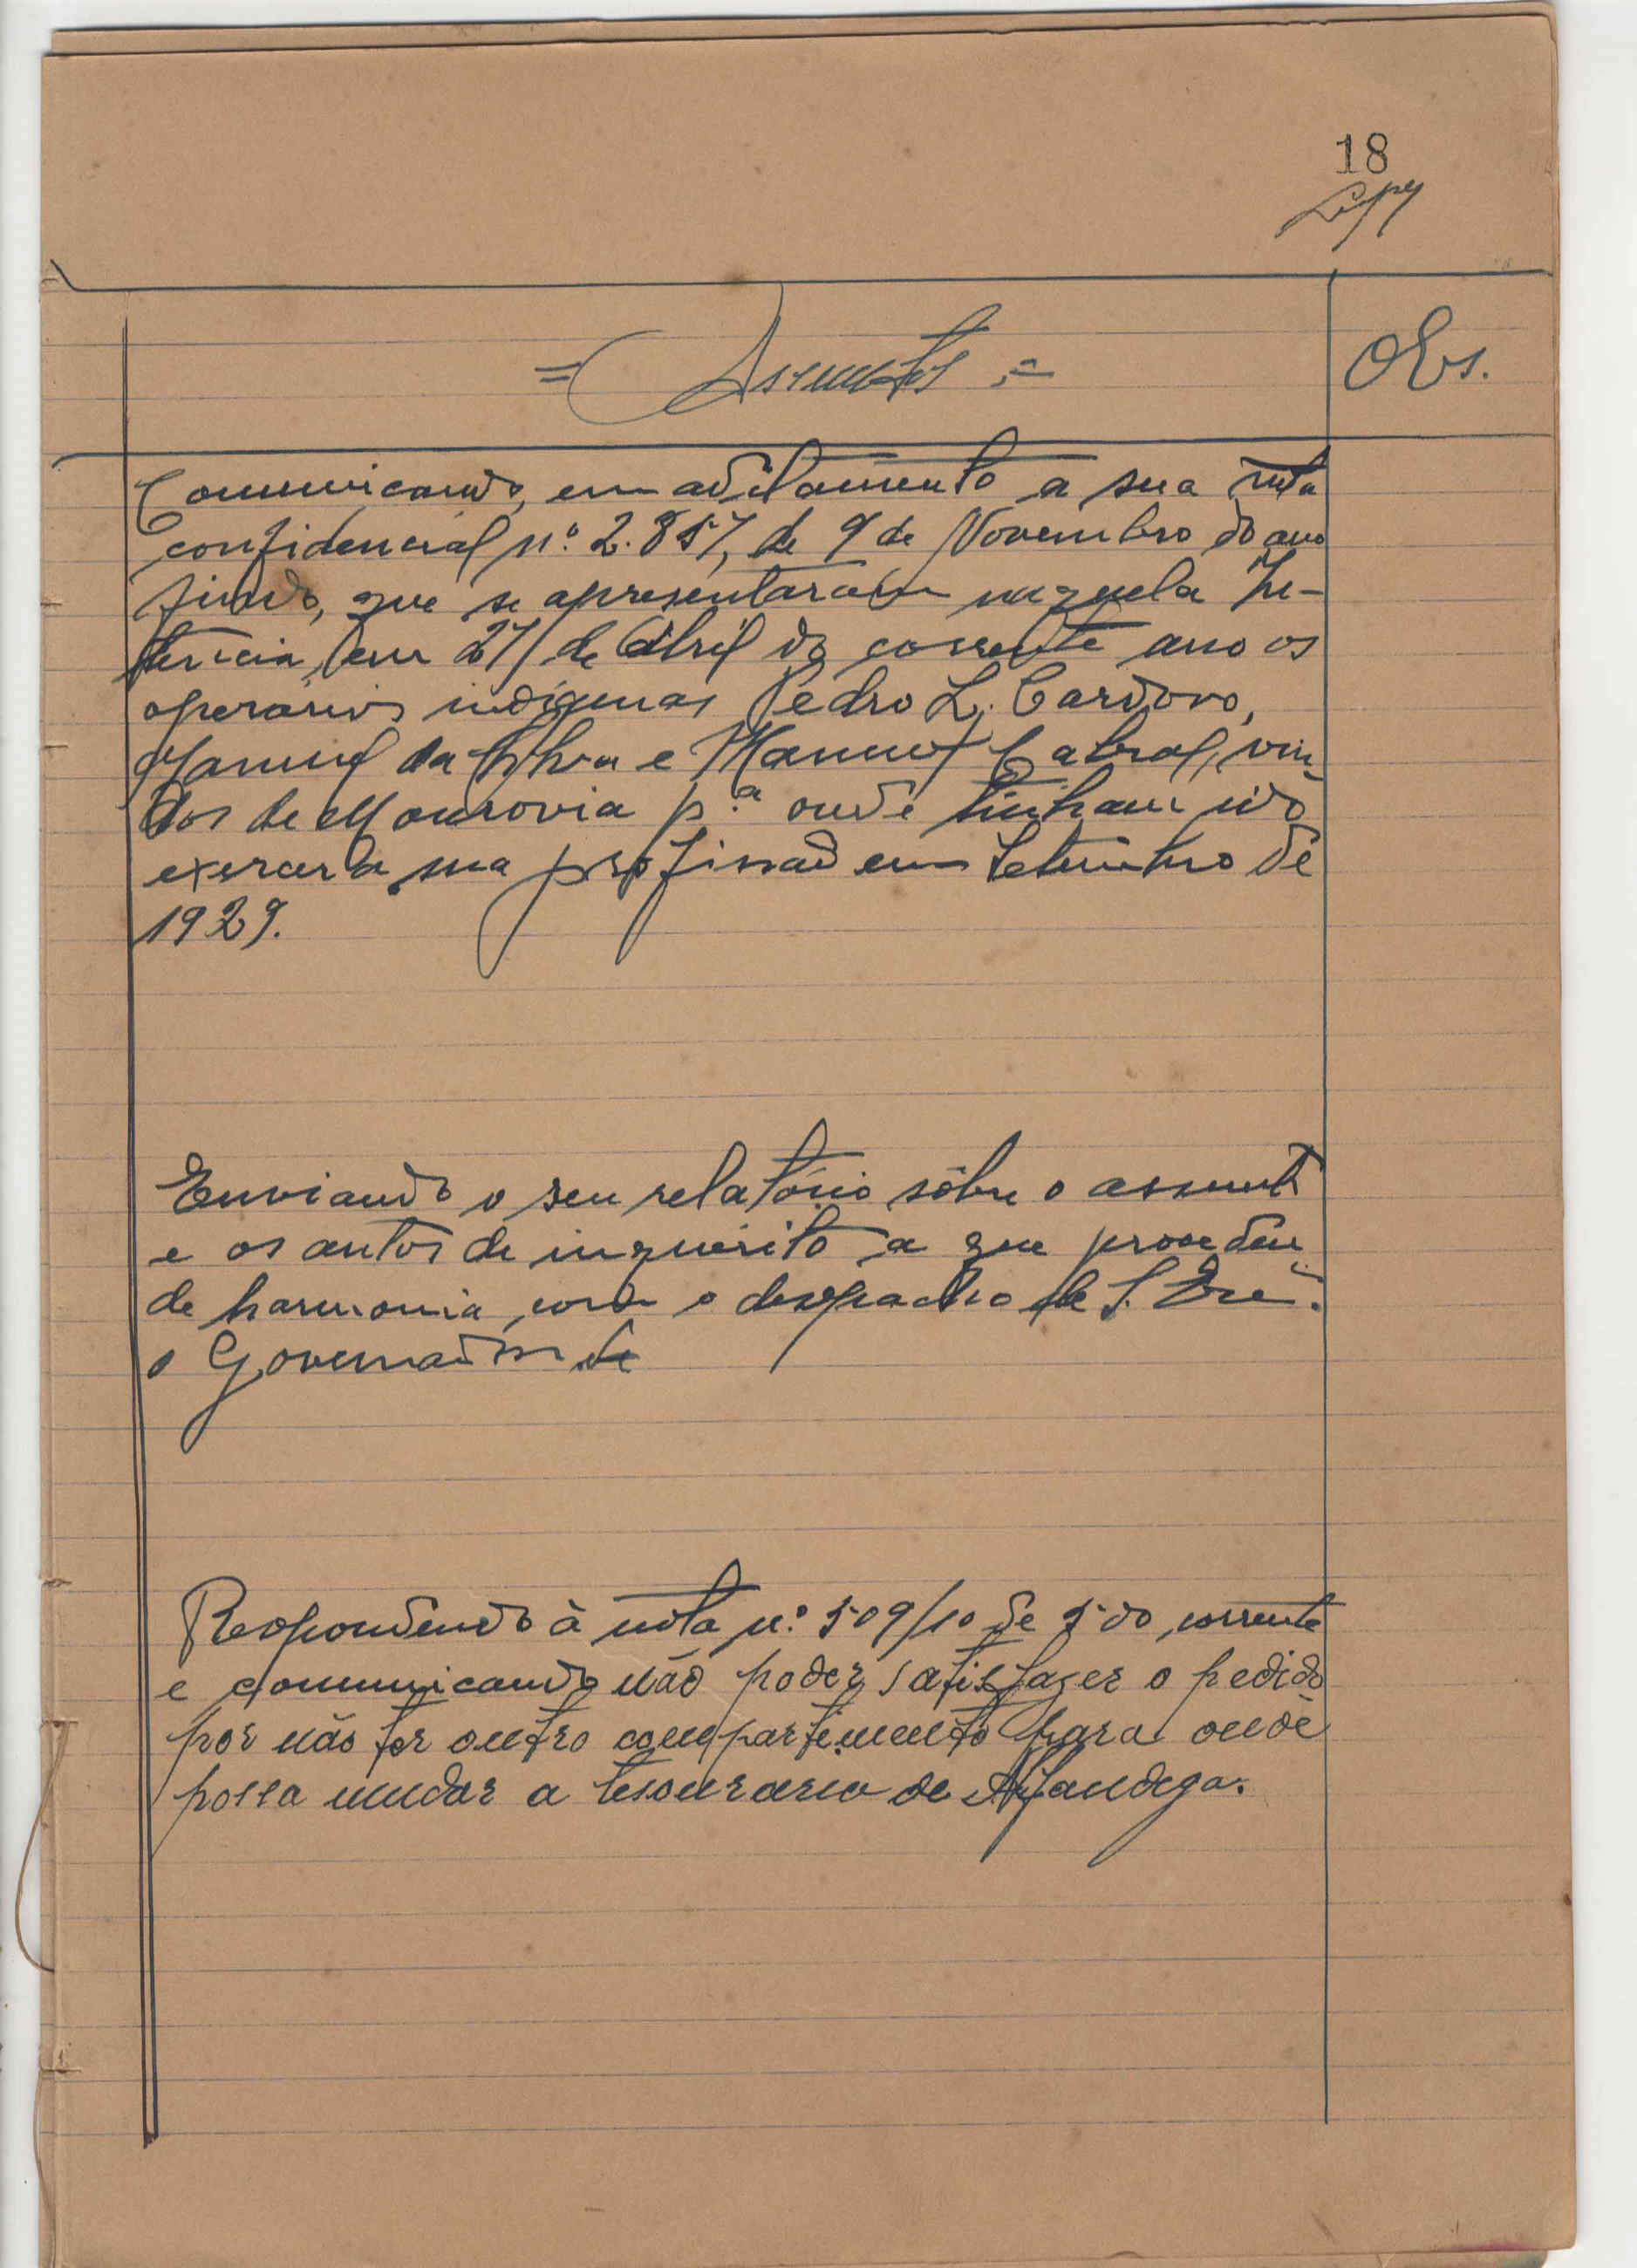 18
= Assuntos =
Obs.
Comunicando, em aditamento a sua nota
confidencial n.º 2.857, de 9 de Novembro do ano
findo, que se apresentaram naquela In-
tericia, em 27 de Abril do corrente ano os
operários indígenas Pedro L. Cardoso,
Manuel da Silva e Manuel Cabral, vin-
dos de Monrovia p.ª onde tinham ido
exercer a sua profissão em Setembro de
1929.
Enviando o seu relatório sôbre o assunto
e os autos de inquérito a que procedeu
de harmonia com o despacho de S. Ex.ª
o Governador de
Respondendo à nota n.º 509/10 de 5 do corrente
e comunicando não poder satisfazer o pedido
por não ter outro compartimento para onde
possa mudar a tesouraria de Alfandega.